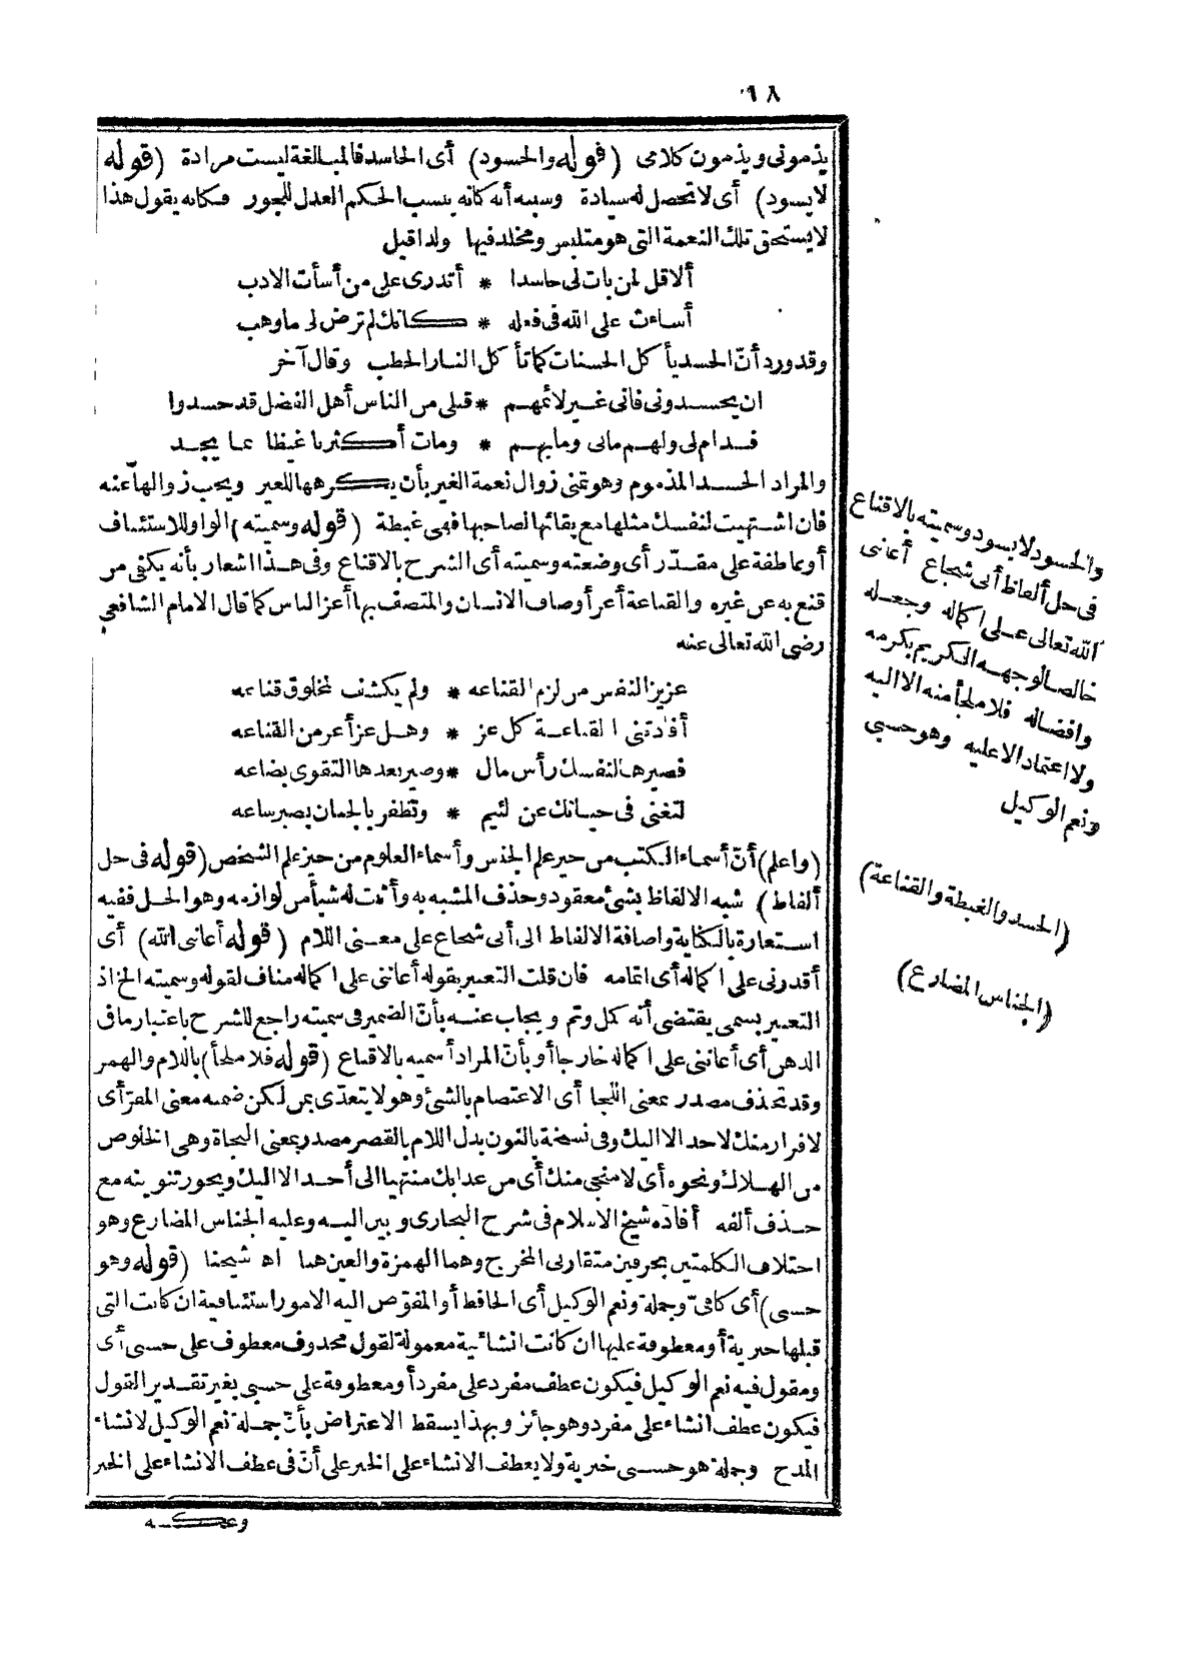 ٦٨
يذمونى ويذمون كلامى (قوله والحسود) أى الحاسد فالمبالغة ليست مرادة (قوله
لا يسود) أى لا تحصل له سيادة وسببه أنه كانه ينسب الحكم العدل للجور فكانه يقول هذا
لا يستحق تلك النعمة التى هو متلبس ومخلد فيها ولذا قيل
ألا قل لمن بات لى حاسدا * أتدرى على من أسأت الادب
أساءت على الله فى فعله * كانك لم ترض لى ما وهب
وقد ورد أنّ الحسد يأكل الحسنات كما تأكل النار الحطب وقال آخر
ان يحسدونى فانى غير لائمهم * قبلى من الناس أهل الفضل قد حسدوا
فدام لى ولهم مابى وما بهم * ومات أكثرنا غيظا بما يجد
والمراد الحسد المذموم وهو تمنى زوال نعمة الغير بأن يكرهها للغير ويحب زوالها عنه
فان اشتهيت لنفسك مثلها مع بقائها لصاحبها فهى غبطة (قوله وسميته) الواو للاستئناف
أو عاطفة على مقدّر أى وضعته وسميته أى الشرح بالاقناع وفى هذا اشعار بأنه يكفى من
قنع به عن غيره والقناعة أعز أوصاف الانسان والمتصف بها أعز الناس كما قال الامام الشافعي
رضى الله تعالى عنه
عزيز النفس من لزم القناعه * ولم يكشف لمخلوق قناعه
أفادتنى القناعة كل عز * وهل عز أعز من القناعه
فصيرها لنفسك رأس مال * وصير بعدها التقوى بضاعه
لتغنى فى حياتك عن لئيم * وتظفر بالجنان بصبر ساعه
(واعلم) أنّ أسماء الكتب من حيز علم الجنس وأسماء العلوم من حيز علم الشخص (قوله فى حل
ألفاظ) شبه الالفاظ بشئ معقود وحذف المشبه به وأثبت له شيأ من لوازمه وهو الحل ففيه
استعارة بالكناية واضافة الالفاظ الى أبى شجاع على معنى اللام (قوله أعانى الله) أى
أقدرنى على اكماله أى اتمامه فان قلت التعبير بقوله أعاننى على اكماله مناف لقوله وسميته الخ اذ
التعبير بسمى يقتضى أنه كمل وتم ويجاب عنه بأنّ الضمير فى سميته راجع للشرح باعتبار ما فى
الذهن أى أعاننى على اكماله خارجا أو بأنّ المراد أسميه بالاقناع (قوله فلا ملجأ) باللام والهمز
وقد تحذف مصدر بمعنى اللجا أى الاعتصام بالشئ وهو لا يتعدّى بمن لكن ضمنه معنى المفرّ أى
لا فرار منك لاحد الا اليك وفى نسخة بالنون بدل اللام بالقصر مصدر بمعنى النجاة وهى الخلوص
من الهلاك ونحوه أى لا منجى منك أى من عذابك منتهيا الى أحد الا اليك ويجوز تنوينه مع
حذف ألفه أفاده شيخ الاسلام فى شرح البخارى وبين اليه وعليه الجناس المضارع وهو
اختلاف الكلمتين بحرفين متقاربى المخرج وهما الهمزة والعين هنا اه شيخنا (قوله وهو
حسبى) أى كافىّ وجملة ونعم الوكيل أى الحافظ أو المفوّض اليه الامور استئنافية ان كانت التى
قبلها خبرية أو معطوفة عليها ان كانت انشائية معمولة لقول محذوف معطوف على حسبى أى
ومقول فيه نعم الوكيل فيكون عطف مفرد على مفرد أو معطوفة على حسبى بغير تقدير القول
فيكون عطف انشاء على مفرد وهو جائز وبهذا يسقط الاعتراض بأنّ جملة نعم الوكيل لانشاء
المدح وجملة هو حسبى خبرية ولا يعطف الانشاء على الخبر على أنّ فى عطف الانشاء على الخبر
وعكسه
والحسود لا يسود وسميته بالاقناع
فى حل ألفاظ أبى شجاع أعانى
الله تعالى على اكماله وجعله
خالصا لوجهه الكريم بكرمه
وافضاله فلا ملجأ منه الا اليه
ولا اعتماد الا عليه وهو حسبى
ونعم الوكيل
(الحسد والغبطة والقناعة)
(الجناس المضارع)